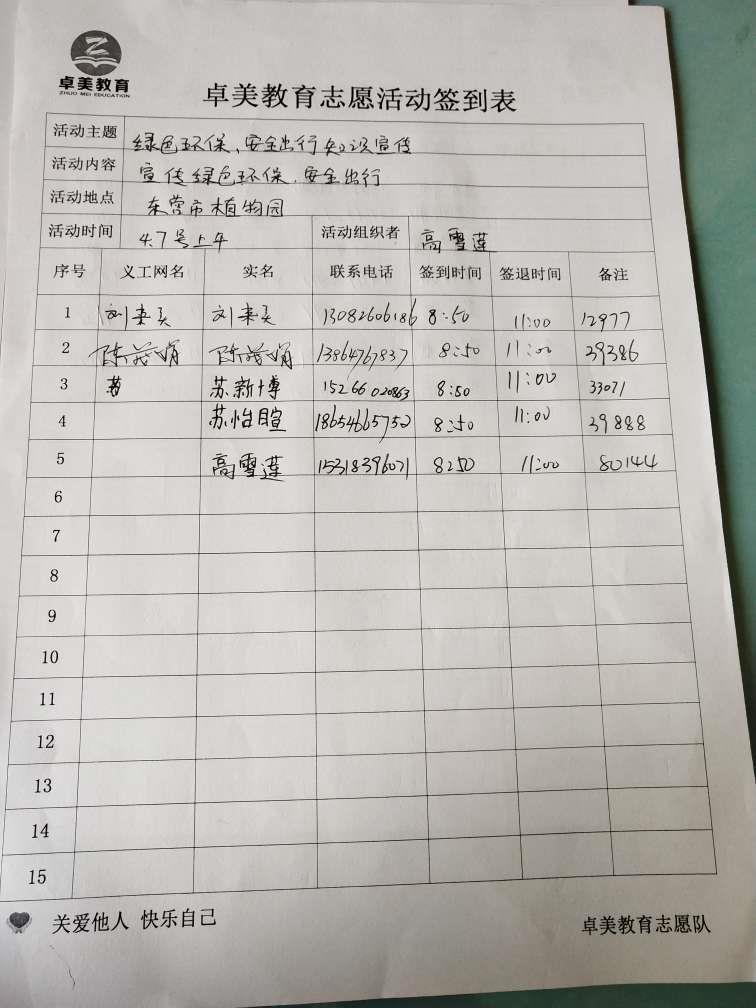 卓美教育
ZHUO MEI EDUCATION
卓美教育志愿活动签到表
活动主题 绿色环保、安全出行知识宣传
活动内容 宣传绿色环保、安全出行
活动地点 东营市植物园
活动时间 4.7号上午 活动组织者 高雪莲
序号 义工网名 实名 联系电话 签到时间 签退时间 备注
1 刘来 刘来 13082606186 8:50 11:00 12977
2 陈茂娟 陈茂娟 13864767837 8:50 11:00 39386
3 苏 苏新博 15266020863 8:50 11:00 33071
4 苏怡暄 18654665752 8:50 11:00 39888
5 高雪莲 15318396071 8250 11:00 80144
6
7
8
9
10
11
12
13
14
15
关爱他人 快乐自己 卓美教育志愿队